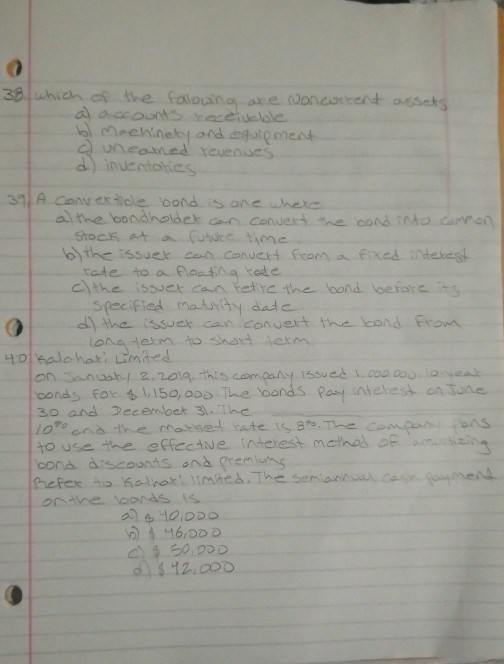 38 which of the falowing are Noncurrent assets
a) accounts receivable
b) Mechinery and equipment
c) unearned revenues
d) inventories
39. A convertible bond is one where
a) the bondholder can convert the bond into common
stock at a future time
b) the issuer can convert from a fixed interest
rate to a floating rate
c) the issuer can retire the bond before its
specified maturity date
d) the issuer can convert the bond from
long term to short term
40 Kalahari Limited
on January 2, 2019, this company issued 1,000,000, 10-year
bonds for $1,150,000. The bonds pay interest on June
30 and December 31. The
10% and the market rate is 8%. The company plans
to use the effective interest method of amortizing
bond discounts and premiums
Refer to Kalhari limited. The semiannual cash payment
on the bonds is
a) $ 40,000
b) $ 46,000
c) $ 50,000
d) $ 42,000